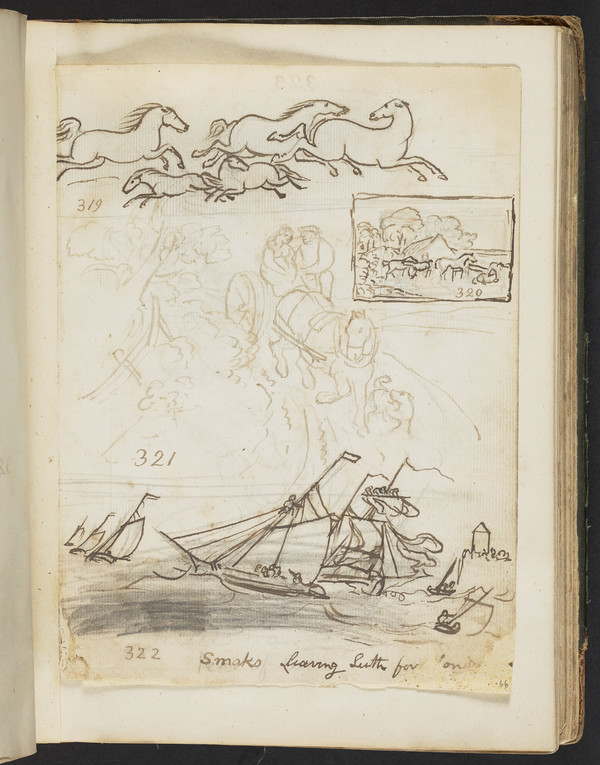 319
320
321
322 Smaks leaving Leith for
66